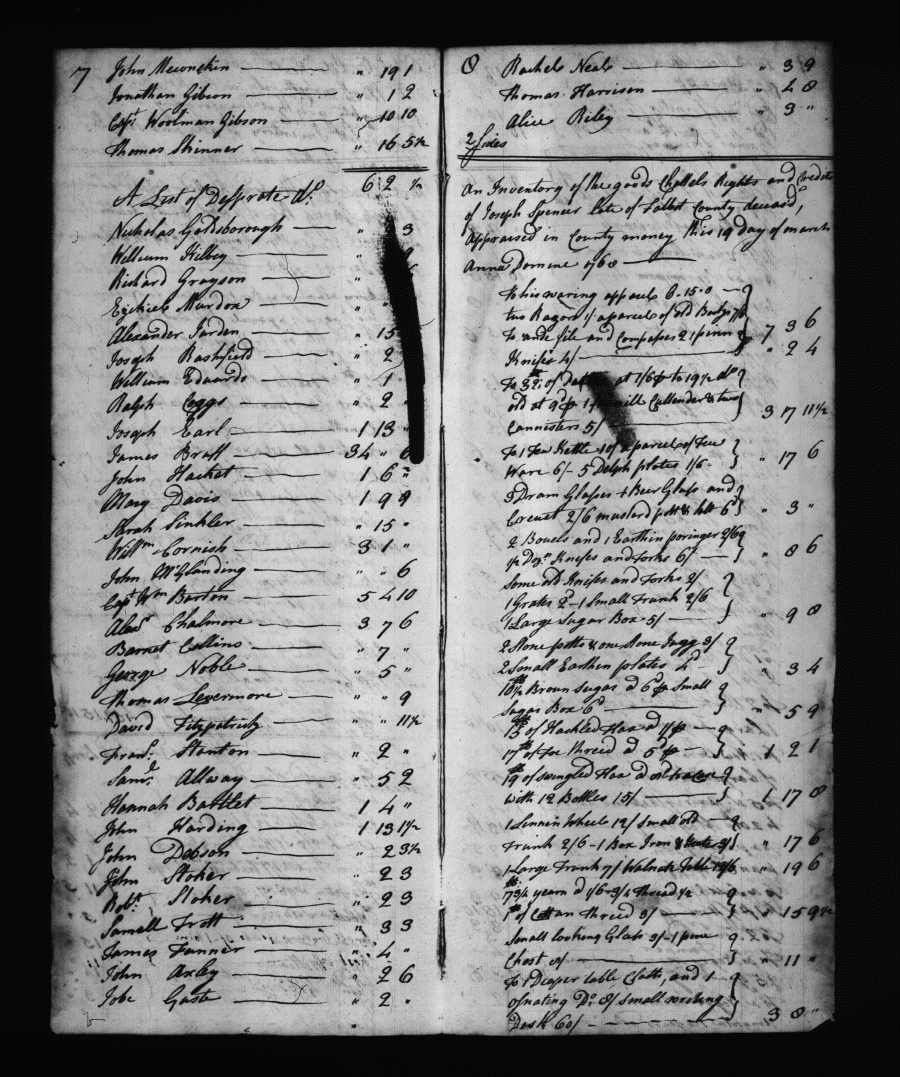 7
John Mewneten " 19 1
Jonathan Gibson " 1 2
Capt. Woolman Gibson " 10 10
Thomas Skinner " 16 5½
62 ½
A List of Desperate Do.
Nicholas Goldsborough " 3
William Kilbey "
Richard Grayson "
Ezekiel "
Alexander Jarden " 15
Joseph Rashfield " 2
William Edwards " 1
Ralph Coggs " 2 "
Joseph Earl 1 13 "
James Bratt 34 " 6
John Hacket 1 6 "
Mary Davis 1 9 9
Sarah Sinkler " 15 "
Willm Cornish 3 1 "
John McGlanding " " 6
Capt Wm Barton 5 4 10
Alexr Chalmore 3 7 6
Barnet Collins " 7 "
George Noble " 5 "
Thomas Levermore " " 9
David Fitzpatrick " " 11½
Frans. Stanton " 2 "
Saml Allway " 5 2
Hannah Bartlet 1 4 "
John Harding 1 13 1½
John Dobson " 2 3½
John Stoker " 2 3
Robt. Stoker " 2 3
Samell Trott " 3 3
James Fanner " 4 "
John Axley " 2 6
Jobe Gaste " 2 "
8
Rachel Neal " 3 9
Thomas Harrison " 4 8
Alice Riley " 3 "
2 Sides
An Inventory of the goods Chattels Rights and Credits
of Joseph Spencer Late of Talbot County deceasd,
Appraised in County money this 19 Day of march
Anna Domine 1768
To his waring apparel 6.15.0
two Razors 1/ a parcel of old Books 7/6 7 3 6
To and file and Compases 2/ penn
Knifes 4/ " 2 4
To 32 of at 1/6 p to 19½ do
old at 9d p Cullender & two
Cannisters 5/ 3 17 11½
To 1 Tea Kettle 10/ a parcel of Tea
Ware 6/- 5 Delph plates 1/6 " 17 6
3 Dram Glasses 1 Beer Glass and
Creuet 2/6 mustard pott & salt 6d " 3 "
2 Bowls and 1 Earthin poringer 2/6
½ Dozn Knifes and forks 6/ " 8 6
Some old Knifes and Forks 2/
1 Grater 2d - 1 Small Trunk 2/6
1 Large Sugar Box 5/ " 9 8
2 Stone potts & one Stone Jugg 3/
2 Small Earthen plates 4d " 3 4
10½ Broun Sugar a 6d p Small
Sugar Box 6d " 5 9
15 of Hackled flax a 1/ p
17 of Toe thread a 5d p 1 2 1
19 of swingled flax a
with 12 Bottles 15/ 1 17 8
1 Linnin Wheele 12/ small old
Trunk 2/6 - 1 Box Iron & heaters 3/ " 17 6
1 Large Trunk 7/ Walnutt Table 12/6 " 19 6
7¾ yearn a 1/6 - 3¼ thread ½
1 of Cottan thread 3/ " 15 9½
Small looking Glass 3/ - 1 pine
Chest 8/ " 11 "
To 1 Diaper table Cloth, and 1
osnating Do 8/ small writing
Desk 60/ 3 8 "